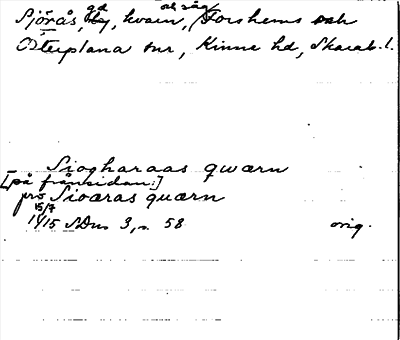 Sjörås, gd, kvarn, och såg, Forshems och
Österplana snr, Kinne hd, Skarab. l.
Siogharaas qwærn
[på frånsidan:]
pro Sioæras quærn
15/7
1415 SDns 3, s. 58 orig.